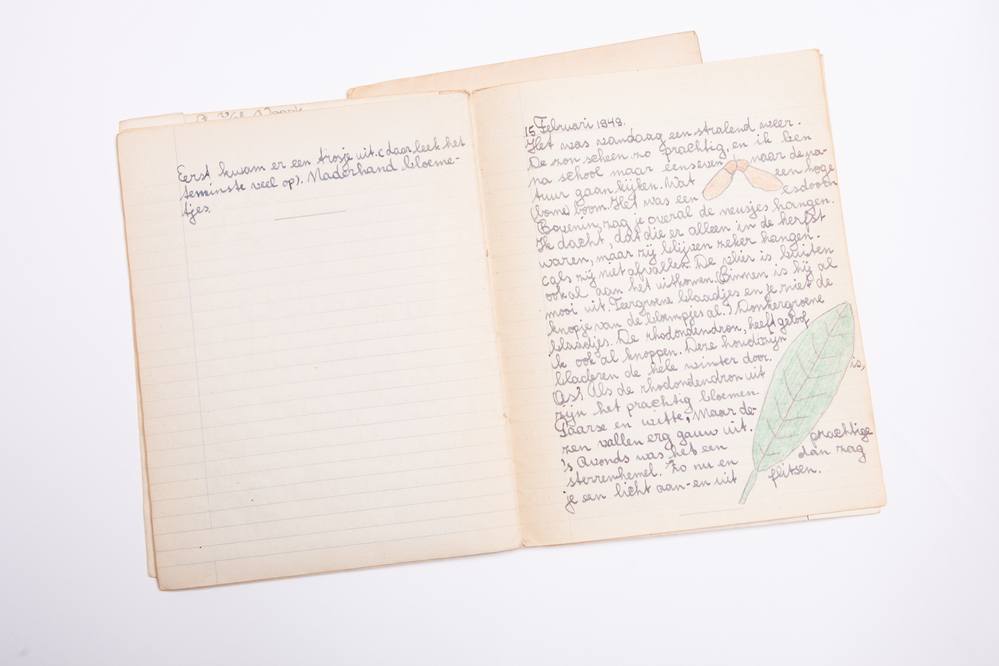 Eerst kwam er een trosje uit.(daar leek het
teminste veel op). Naderhand bloeme-
tjes.
15 Februari 1949.
Het was vandaag een stralend weer.
De zon scheen zo prachtig, en ik ben
na school maar eens even naar de na-
tuur gaan kijken. Wat een hoge
(bome) boom. Het was een esdoorn
Bovenin, zag je overal de neusjes hangen.
Ik dacht, dat die er alleen in de herfst
waren, maar zij blijven zeker hangen.
(als zij niet afvallen. De vlier is buiten
ook al aan het uitkomen. Binnen is hij al
mooi uit. Teergroene blaadjes en je ziet de
knopje van de bloempjes al.) Donkergroene
blaadjes. De rhodondendron, heeft geloof
ik ook al knoppen. Deze houdt zijn
bladeren de hele winter door.
Os! Als de rhodondendron uit is,
zijn het prachtig bloemen.
Paarse en witte, Maar de-
zen vallen erg gauw uit.
's Avonds was het een prachtige
sterrenhemel. Zo nu en dan zag
je een licht aan-en uit flitsen.